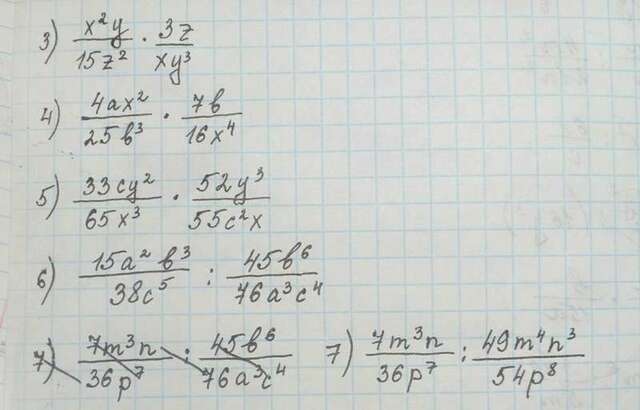 3) x²y/15z² · 3z/xy³
4) 4ax²/25b³ · 7b/16x⁴
5) 33cy²/65x³ · 52y³/55c²x
6) 15a²b³/38c⁵ : 45b⁶/76a³c⁴
7) 7m³n/36p⁷ : 45b⁶/76a³c⁴ 7) 7m³n/36p⁷ : 49m⁴n³/54p⁸